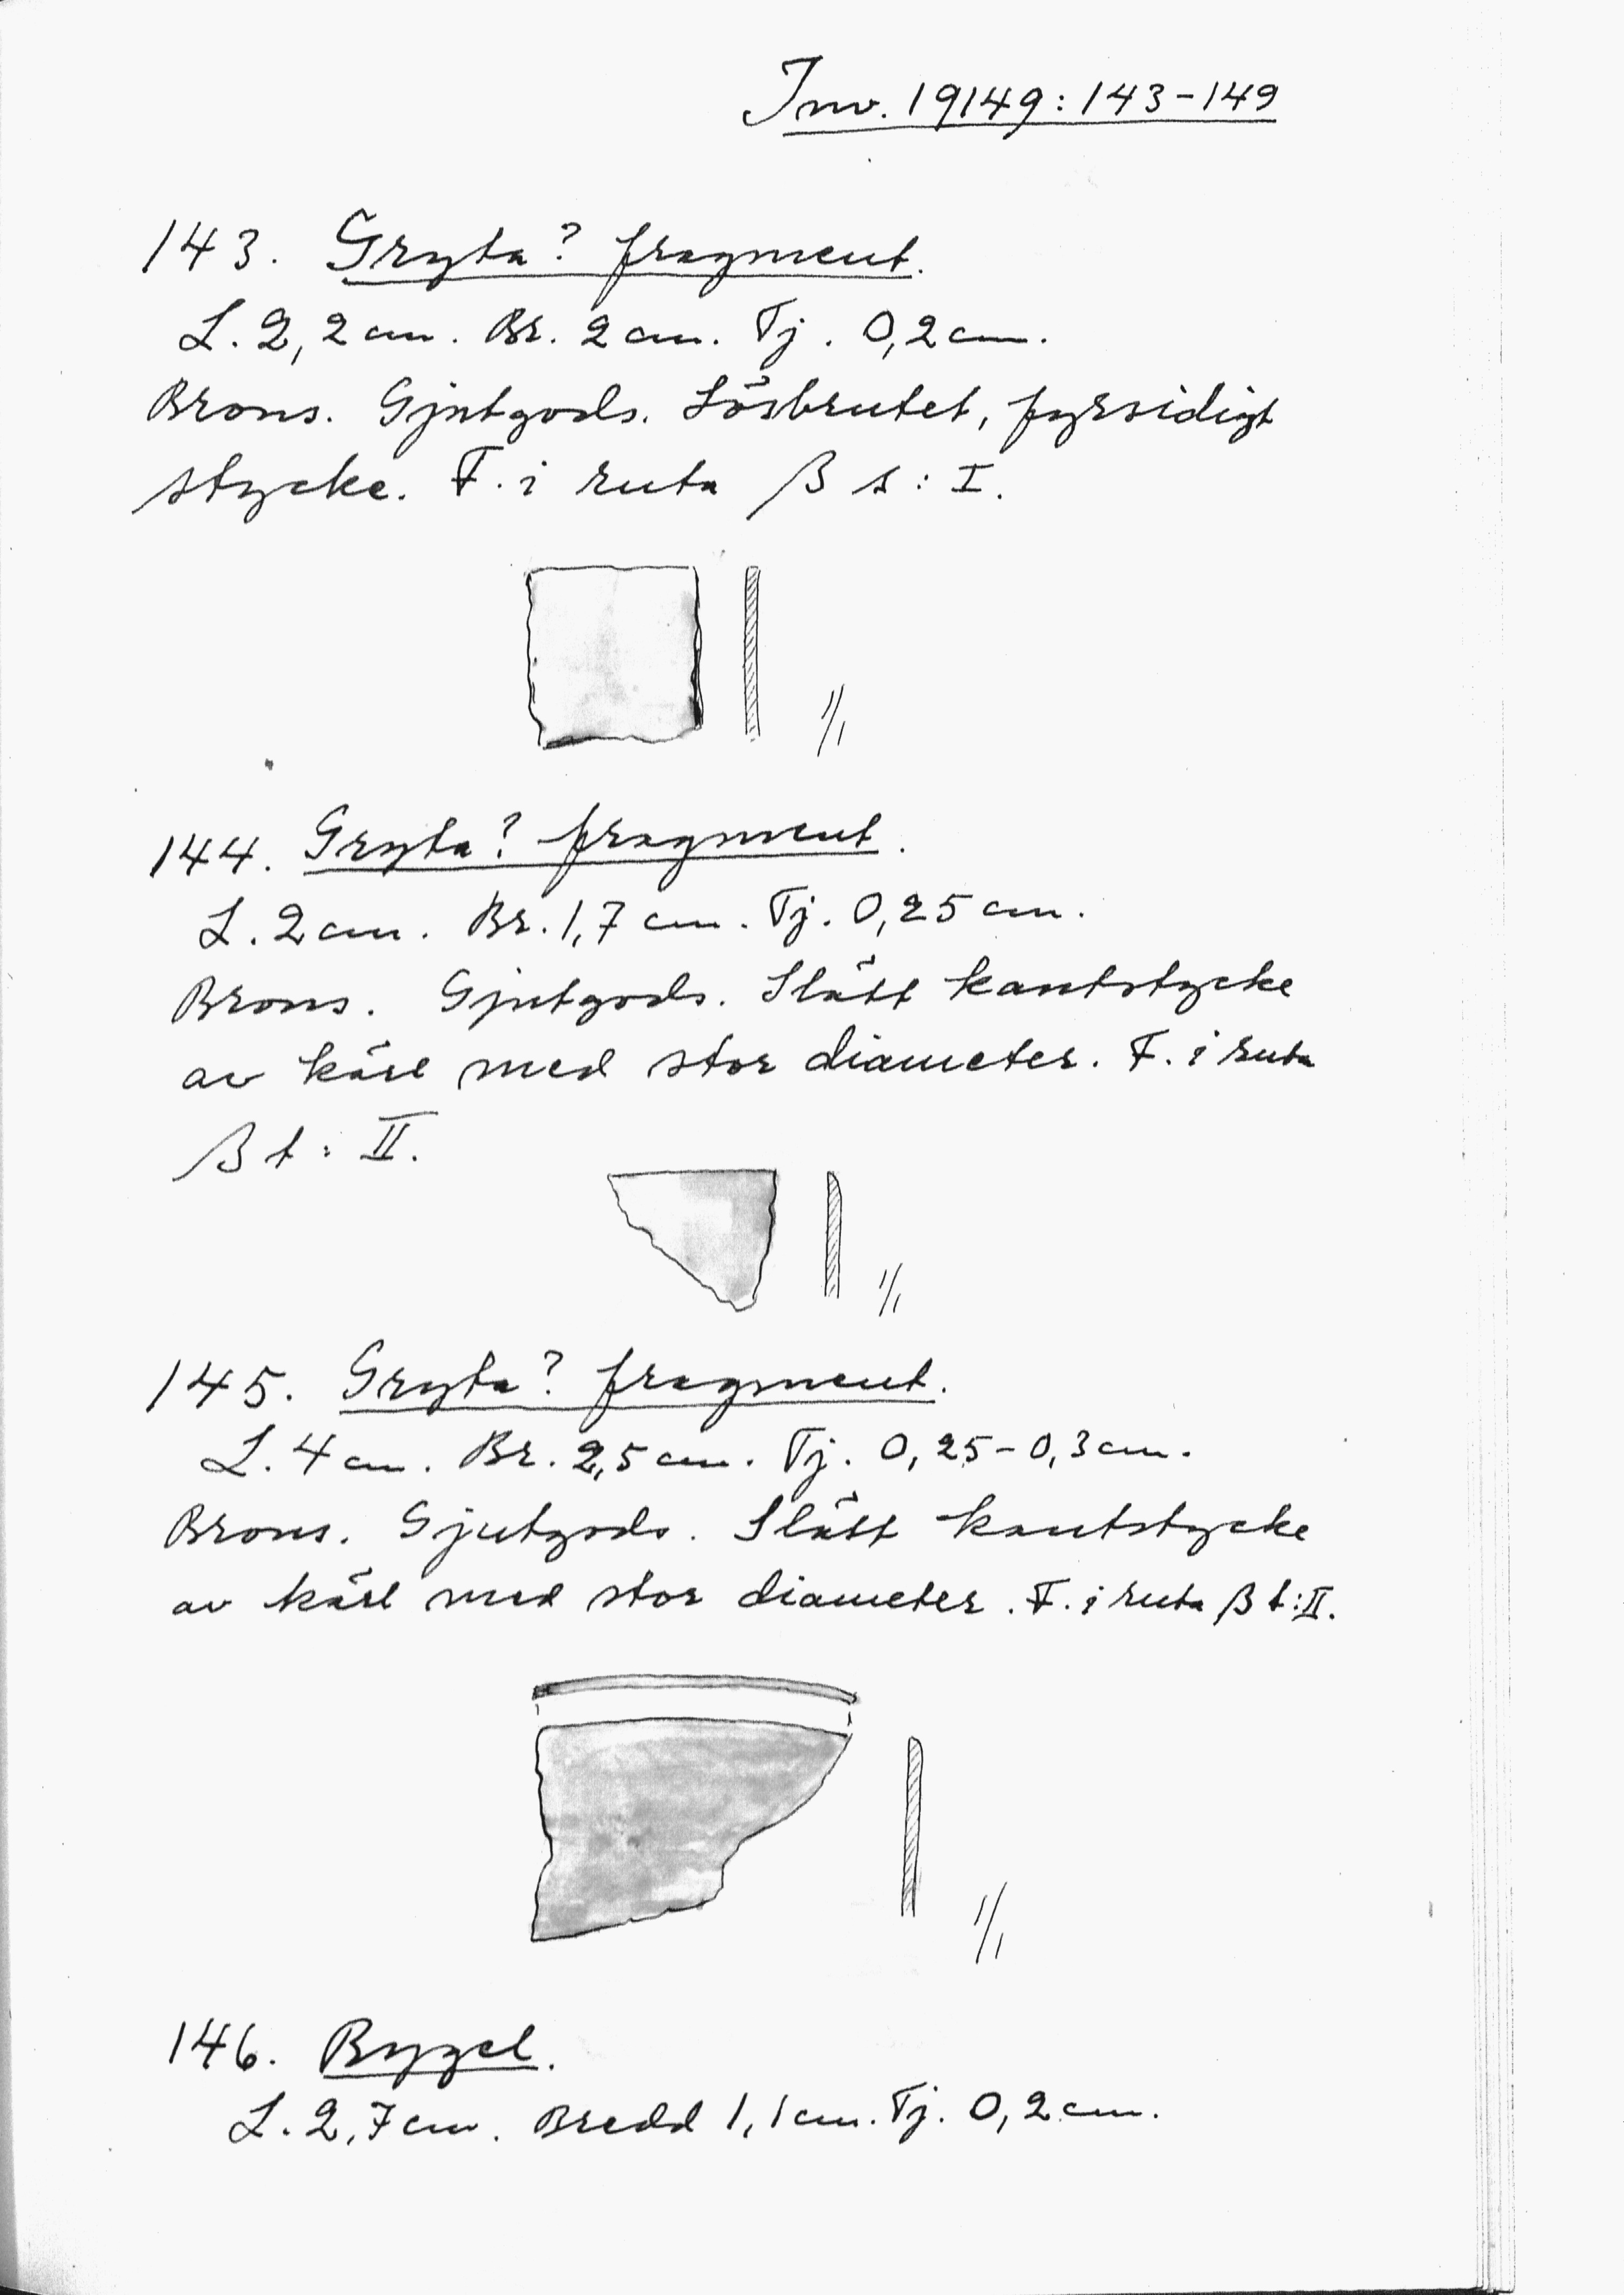 Inv. 19149:143-149
143. Gryta? fragment.
L. 2,2 cm. Br. 2 cm. Tj. 0,2 cm.
Brons. Gjutgods. Lösbrutet, fyrsidigt
stycke. F. i ruta β s: I.
1/1
144. Gryta? fragment.
L. 2 cm. Br. 1,7 cm. Tj. 0,25 cm.
Brons. Gjutgods. Slätt kantstycke
av kärl med stor diameter. F. i ruta
β t: II.
1/1
145. Gryta? fragment.
L. 4 cm. Br. 2,5 cm. Tj. 0,25-0,3 cm.
Brons. Gjutgods. Slätt kantstycke
av kärl med stor diameter. F. i ruta β t: II.
1/1
146. Bygel.
L. 2,7 cm. Bredd 1,1 cm. Tj. 0,2 cm.